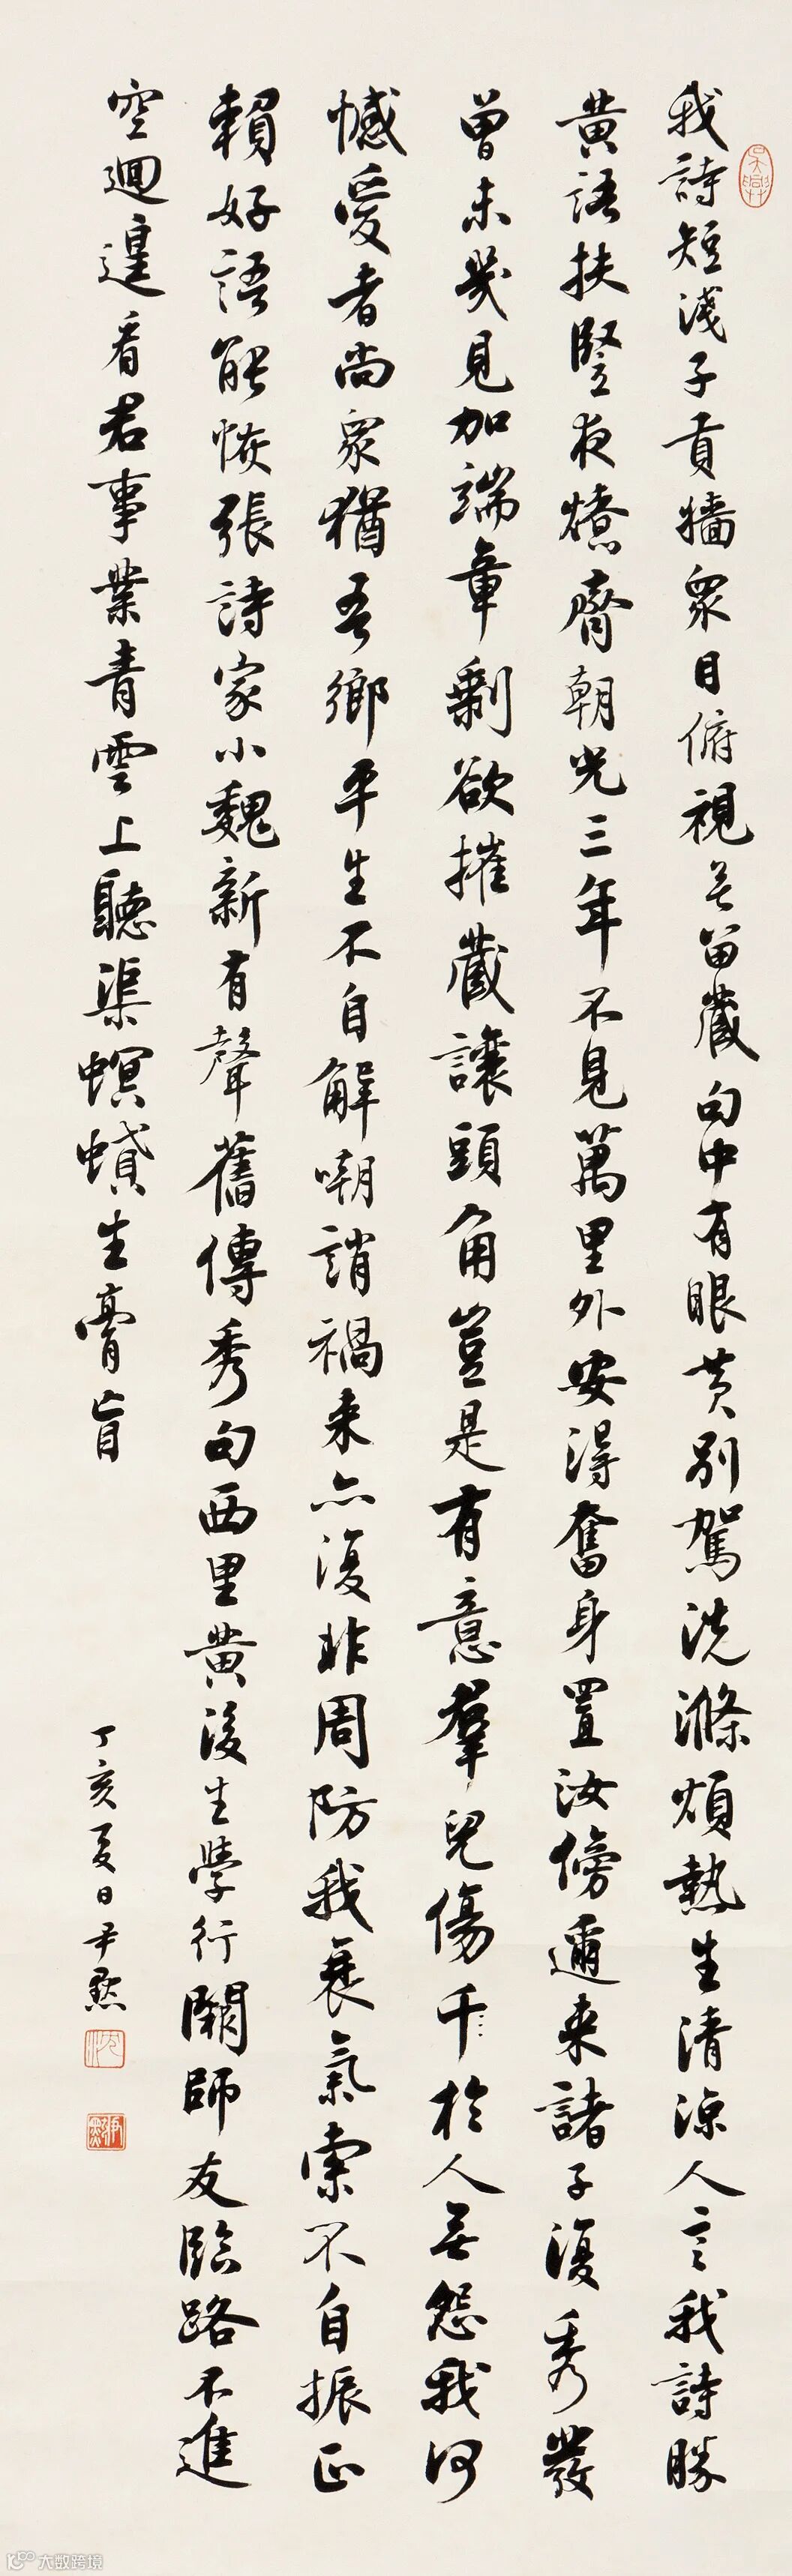 我詩短淺子貢牆衆目俯視無留藏句中有眼黄別駕洗滌煩熱生清涼人言我詩勝
黄語扶豎夜燎齊朝光三年不見萬里外安得奮身置汝傍邇来諸子復秀發
曾未幾見加端章剩欲摧藏讓頭角豈是有意羣兒傷千於人無怨我何
憾爱者尚衆猶吾鄉平生不自解嘲誚禍来亦復非周防我衰氣索不自振正
賴好語能恢張詩家小魏新有聲舊傳秀句西里黄後生學行闕師友臨路不進
空迴遑看君事業青雲上聽渠螟䗿生膏肓
丁亥夏日尹默
沈
尹默
吴興
大数跨境